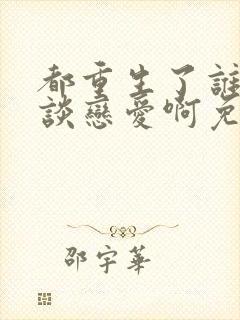 都重生了誰
談戀愛啊免
邵宇華